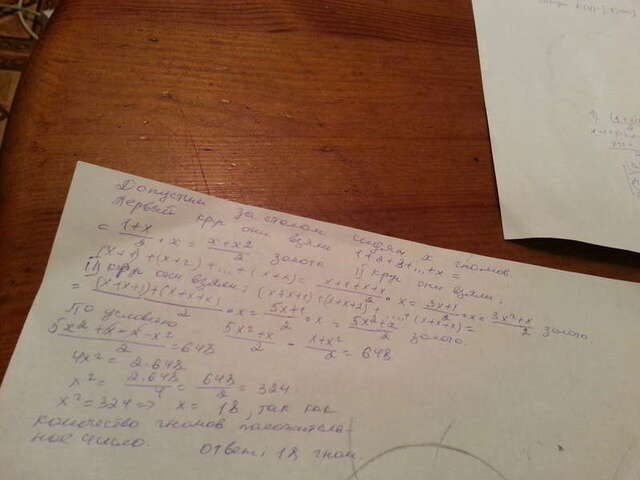 Допустим за столом сидят x гномов
Первый круг они взяли 1+2+3+...+x =
= (1+x)/2 · x = (x+x2)/2 золота II круг они взяли:
(x+1)+(x+2)+...+(x+x) = (x+x+x+1)/2 · x = (3x+1)/2 · x = (3x²+x)/2 золото
III круг они взяли: (x+x+1)+(x+x+2)+...+(x+x+x) =
= ((x+x+1)+(x+x+x))/2 · x = (5x+1)/2 · x = (5x²+x)/2 золото.
По условию (5x²+x)/2 - (x+x²)/2 = 648
(5x²+x-x-x²)/2 = 648
4x² = 2·648
x² = (2·648)/4 = 648/2 = 324
x² = 324 => x = 18, так как
количество гномов положитель-
ное число. Ответ: 18 гном.